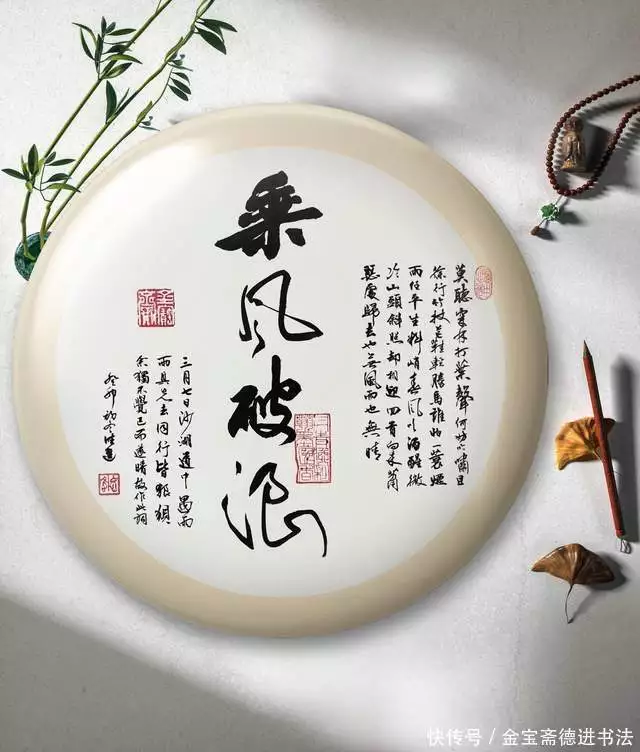 莫聽穿林打葉聲何妨吟嘯且
徐行竹杖芒鞋輕勝馬誰怕一蓑煙
雨任平生料峭春風吹酒醒微
冷山頭斜照却相迎回首向來蕭
瑟處歸去也無風雨也無晴
乘风破浪
三月七日沙湖道中遇雨
雨具先去同行皆狼狽
余獨不覺已而遂晴故作此詞
癸卯初冬德進
快传号 / 金宝斋德进书法